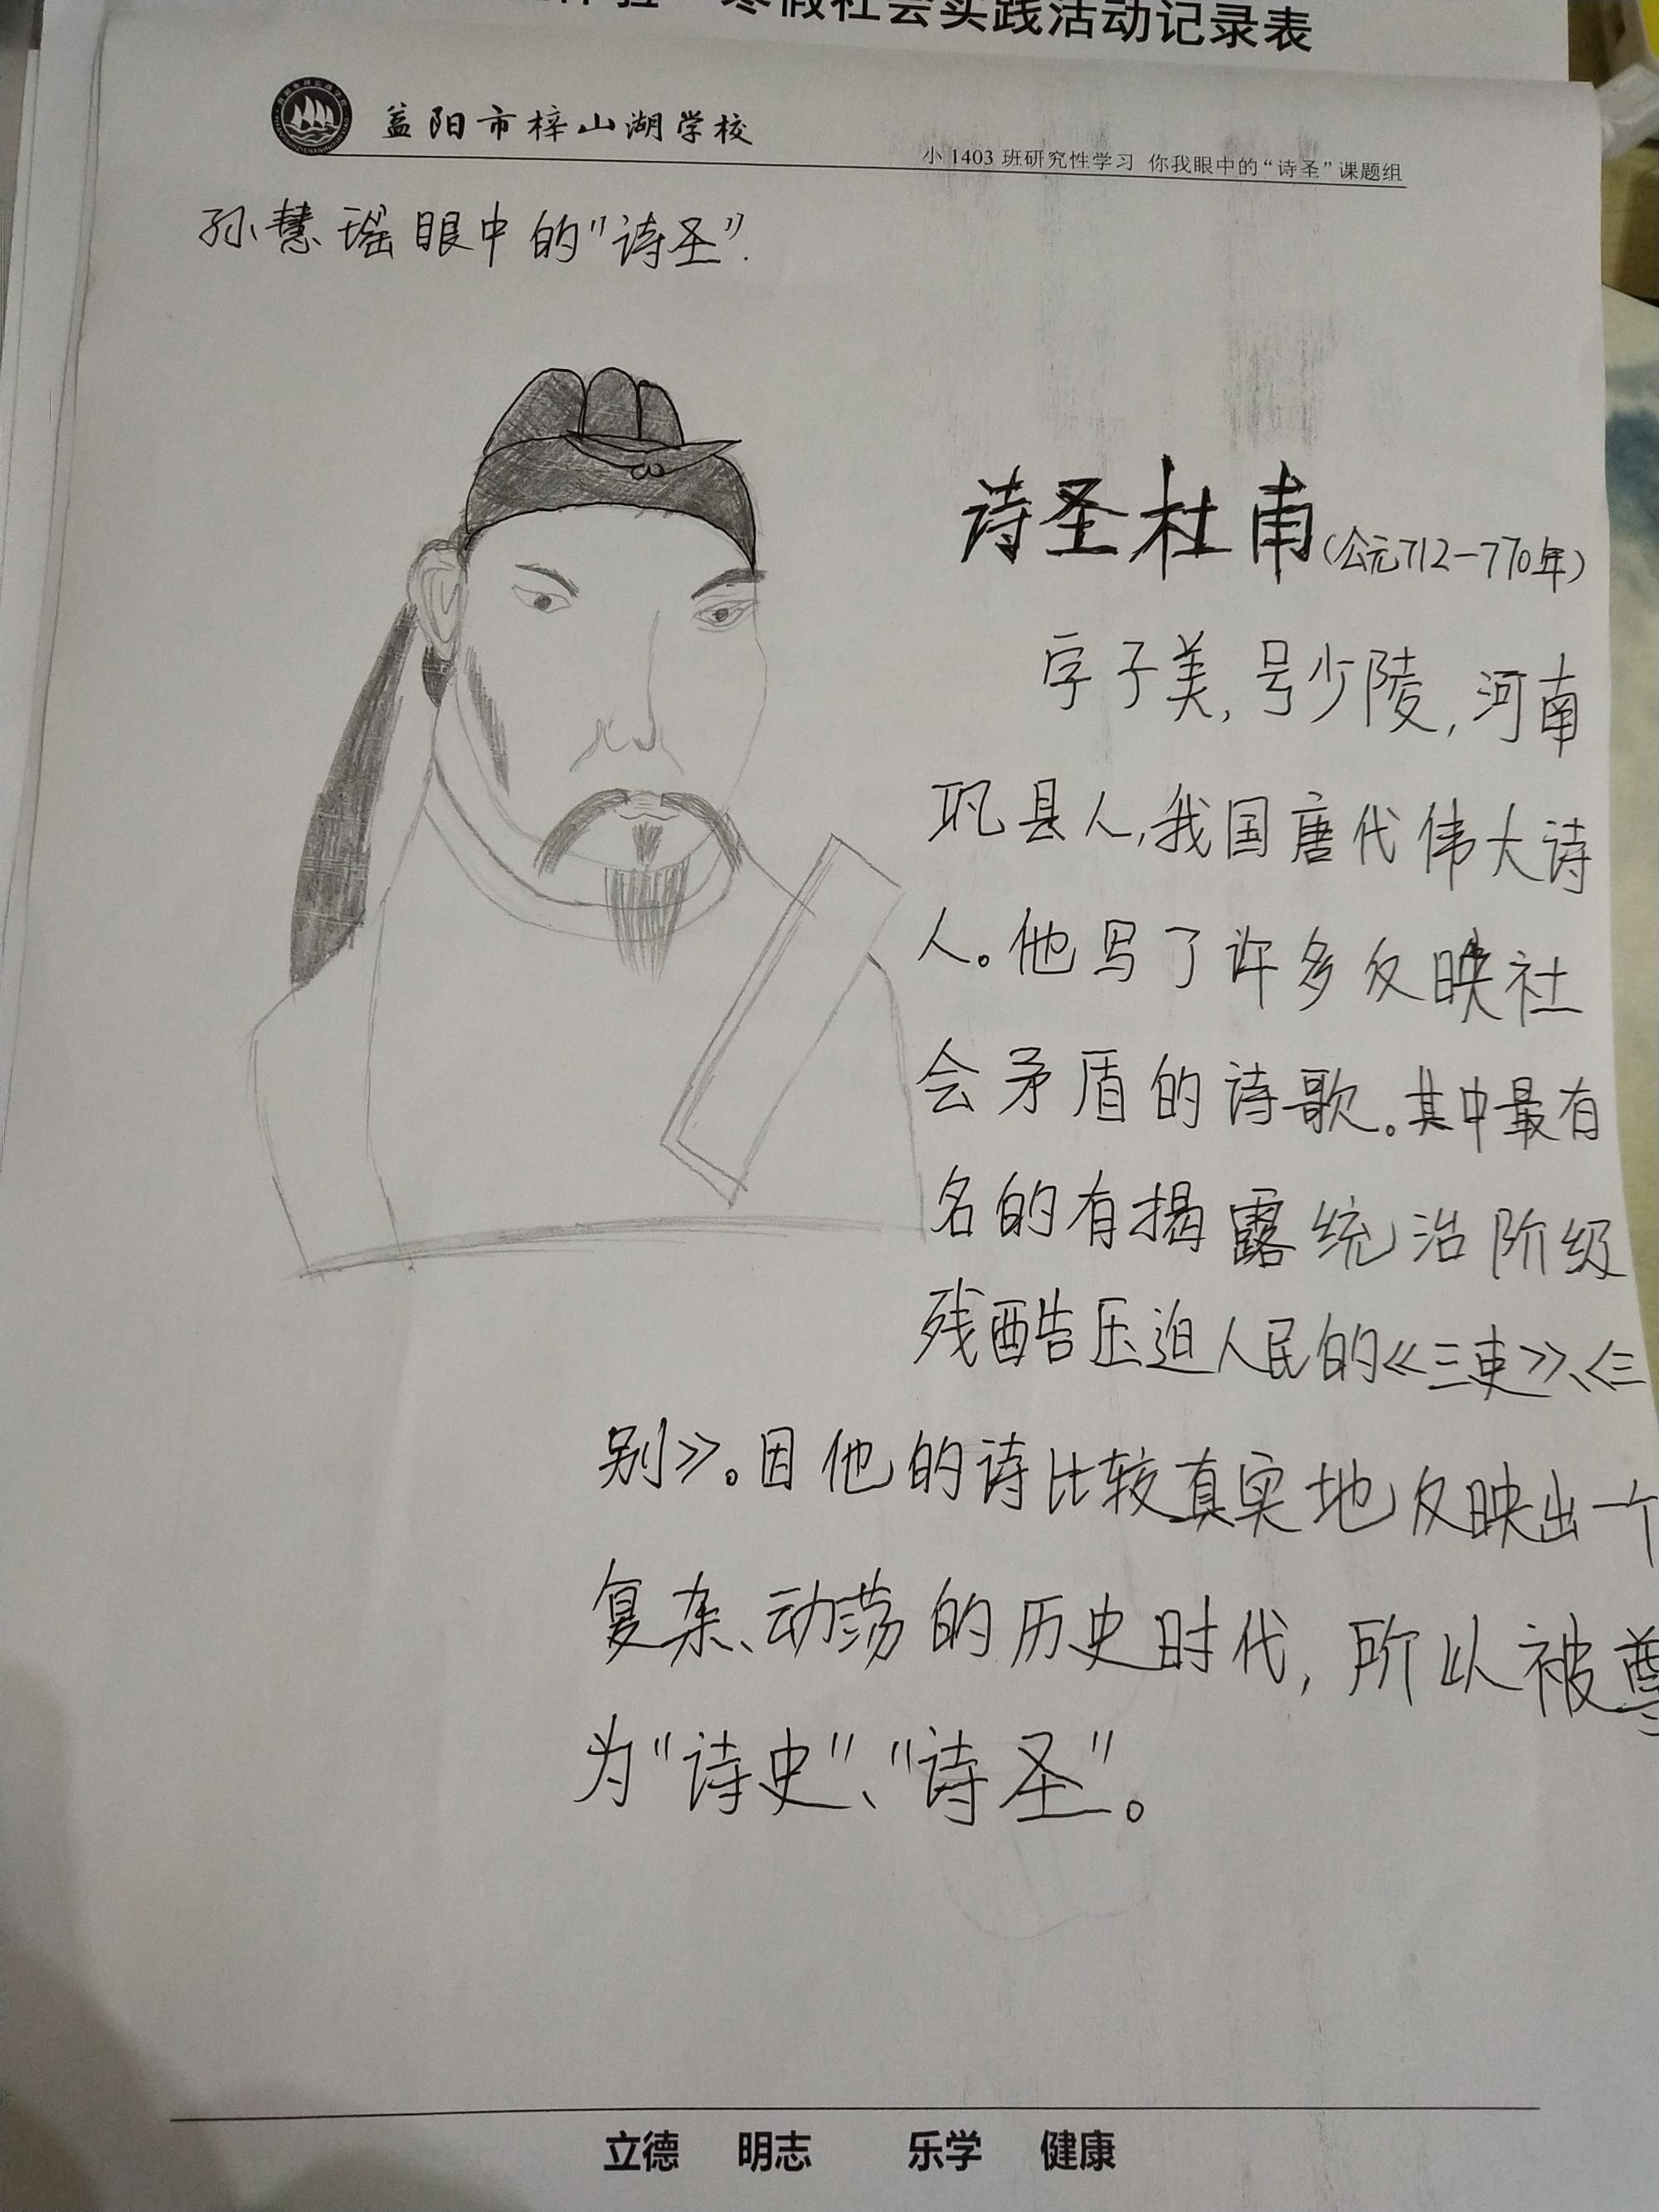 寒假社会实践活动记录表
益阳市梓山湖学校
小 1403 班研究性学习 你我眼中的“诗圣”课题组
孙慧瑶眼中的“诗圣”.
诗圣杜甫(公元712-770年)
字子美,号少陵,河南
巩县人,我国唐代伟大诗
人。他写了许多反映社
会矛盾的诗歌。其中最有
名的有揭露统治阶级
残酷压迫人民的《三吏》、《三
别》。因他的诗比较真实地反映出一个
复杂、动荡的历史时代,所以被尊
为“诗史”、“诗圣”。
立德 明志 乐学 健康